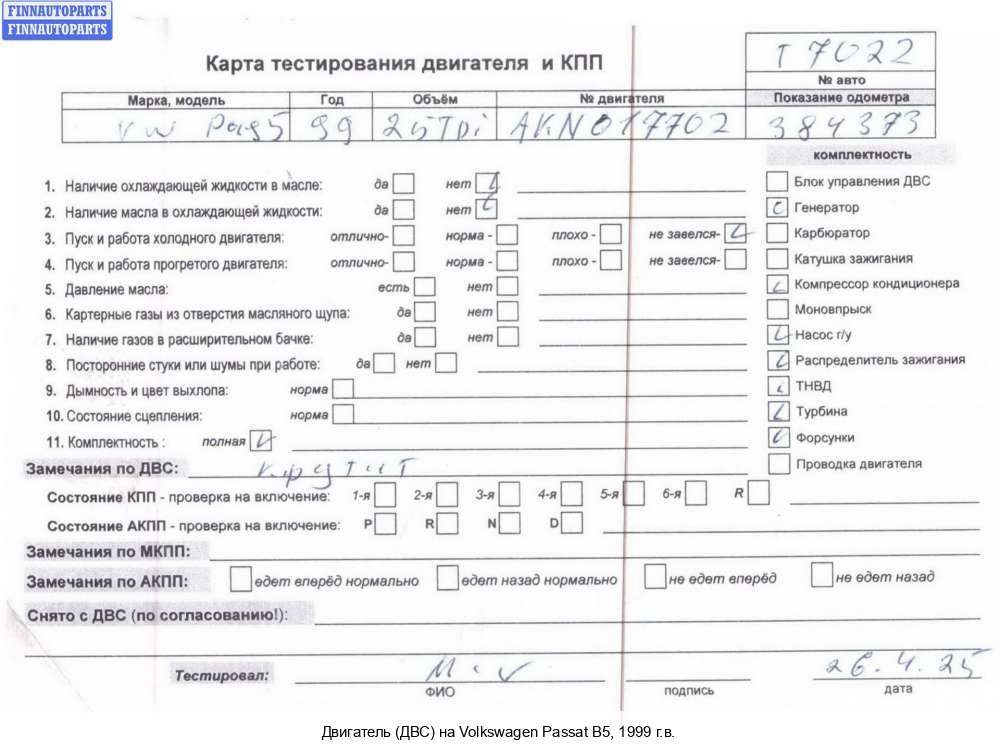 FINNAUTOPARTS
FINNAUTOPARTS
Карта тестирования двигателя и КПП
T 7022
№ авто
Марка, модель Год Объём № двигателя Показание одометра
VW Pas5 99 25TDi AKN017702 384373
комплектность
1. Наличие охлаждающей жидкости в масле: да нет
Блок управления ДВС
2. Наличие масла в охлаждающей жидкости: да нет
Генератор
3. Пуск и работа холодного двигателя: отлично- норма - плохо - не завелся-
Карбюратор
4. Пуск и работа прогретого двигателя: отлично- норма - плохо - не завелся-
Катушка зажигания
5. Давление масла: есть нет
Компрессор кондиционера
6. Картерные газы из отверстия масляного щупа: да нет
Моновпрыск
7. Наличие газов в расширительном бачке: да нет
Насос г/у
8. Посторонние стуки или шумы при работе: да нет
Распределитель зажигания
9. Дымность и цвет выхлопа: норма
ТНВД
10. Состояние сцепления: норма
Турбина
11. Комплектность : полная
Форсунки
Замечания по ДВС: крутит
Проводка двигателя
Состояние КПП - проверка на включение: 1-я 2-я 3-я 4-я 5-я 6-я R
Состояние АКПП - проверка на включение: P R N D
Замечания по МКПП:
Замечания по АКПП: едет вперёд нормально едет назад нормально не едет вперёд не едет назад
Снято с ДВС (по согласованию!):
Тестировал: 26.4.25
ФИО подпись дата
Двигатель (ДВС) на Volkswagen Passat B5, 1999 г.в.